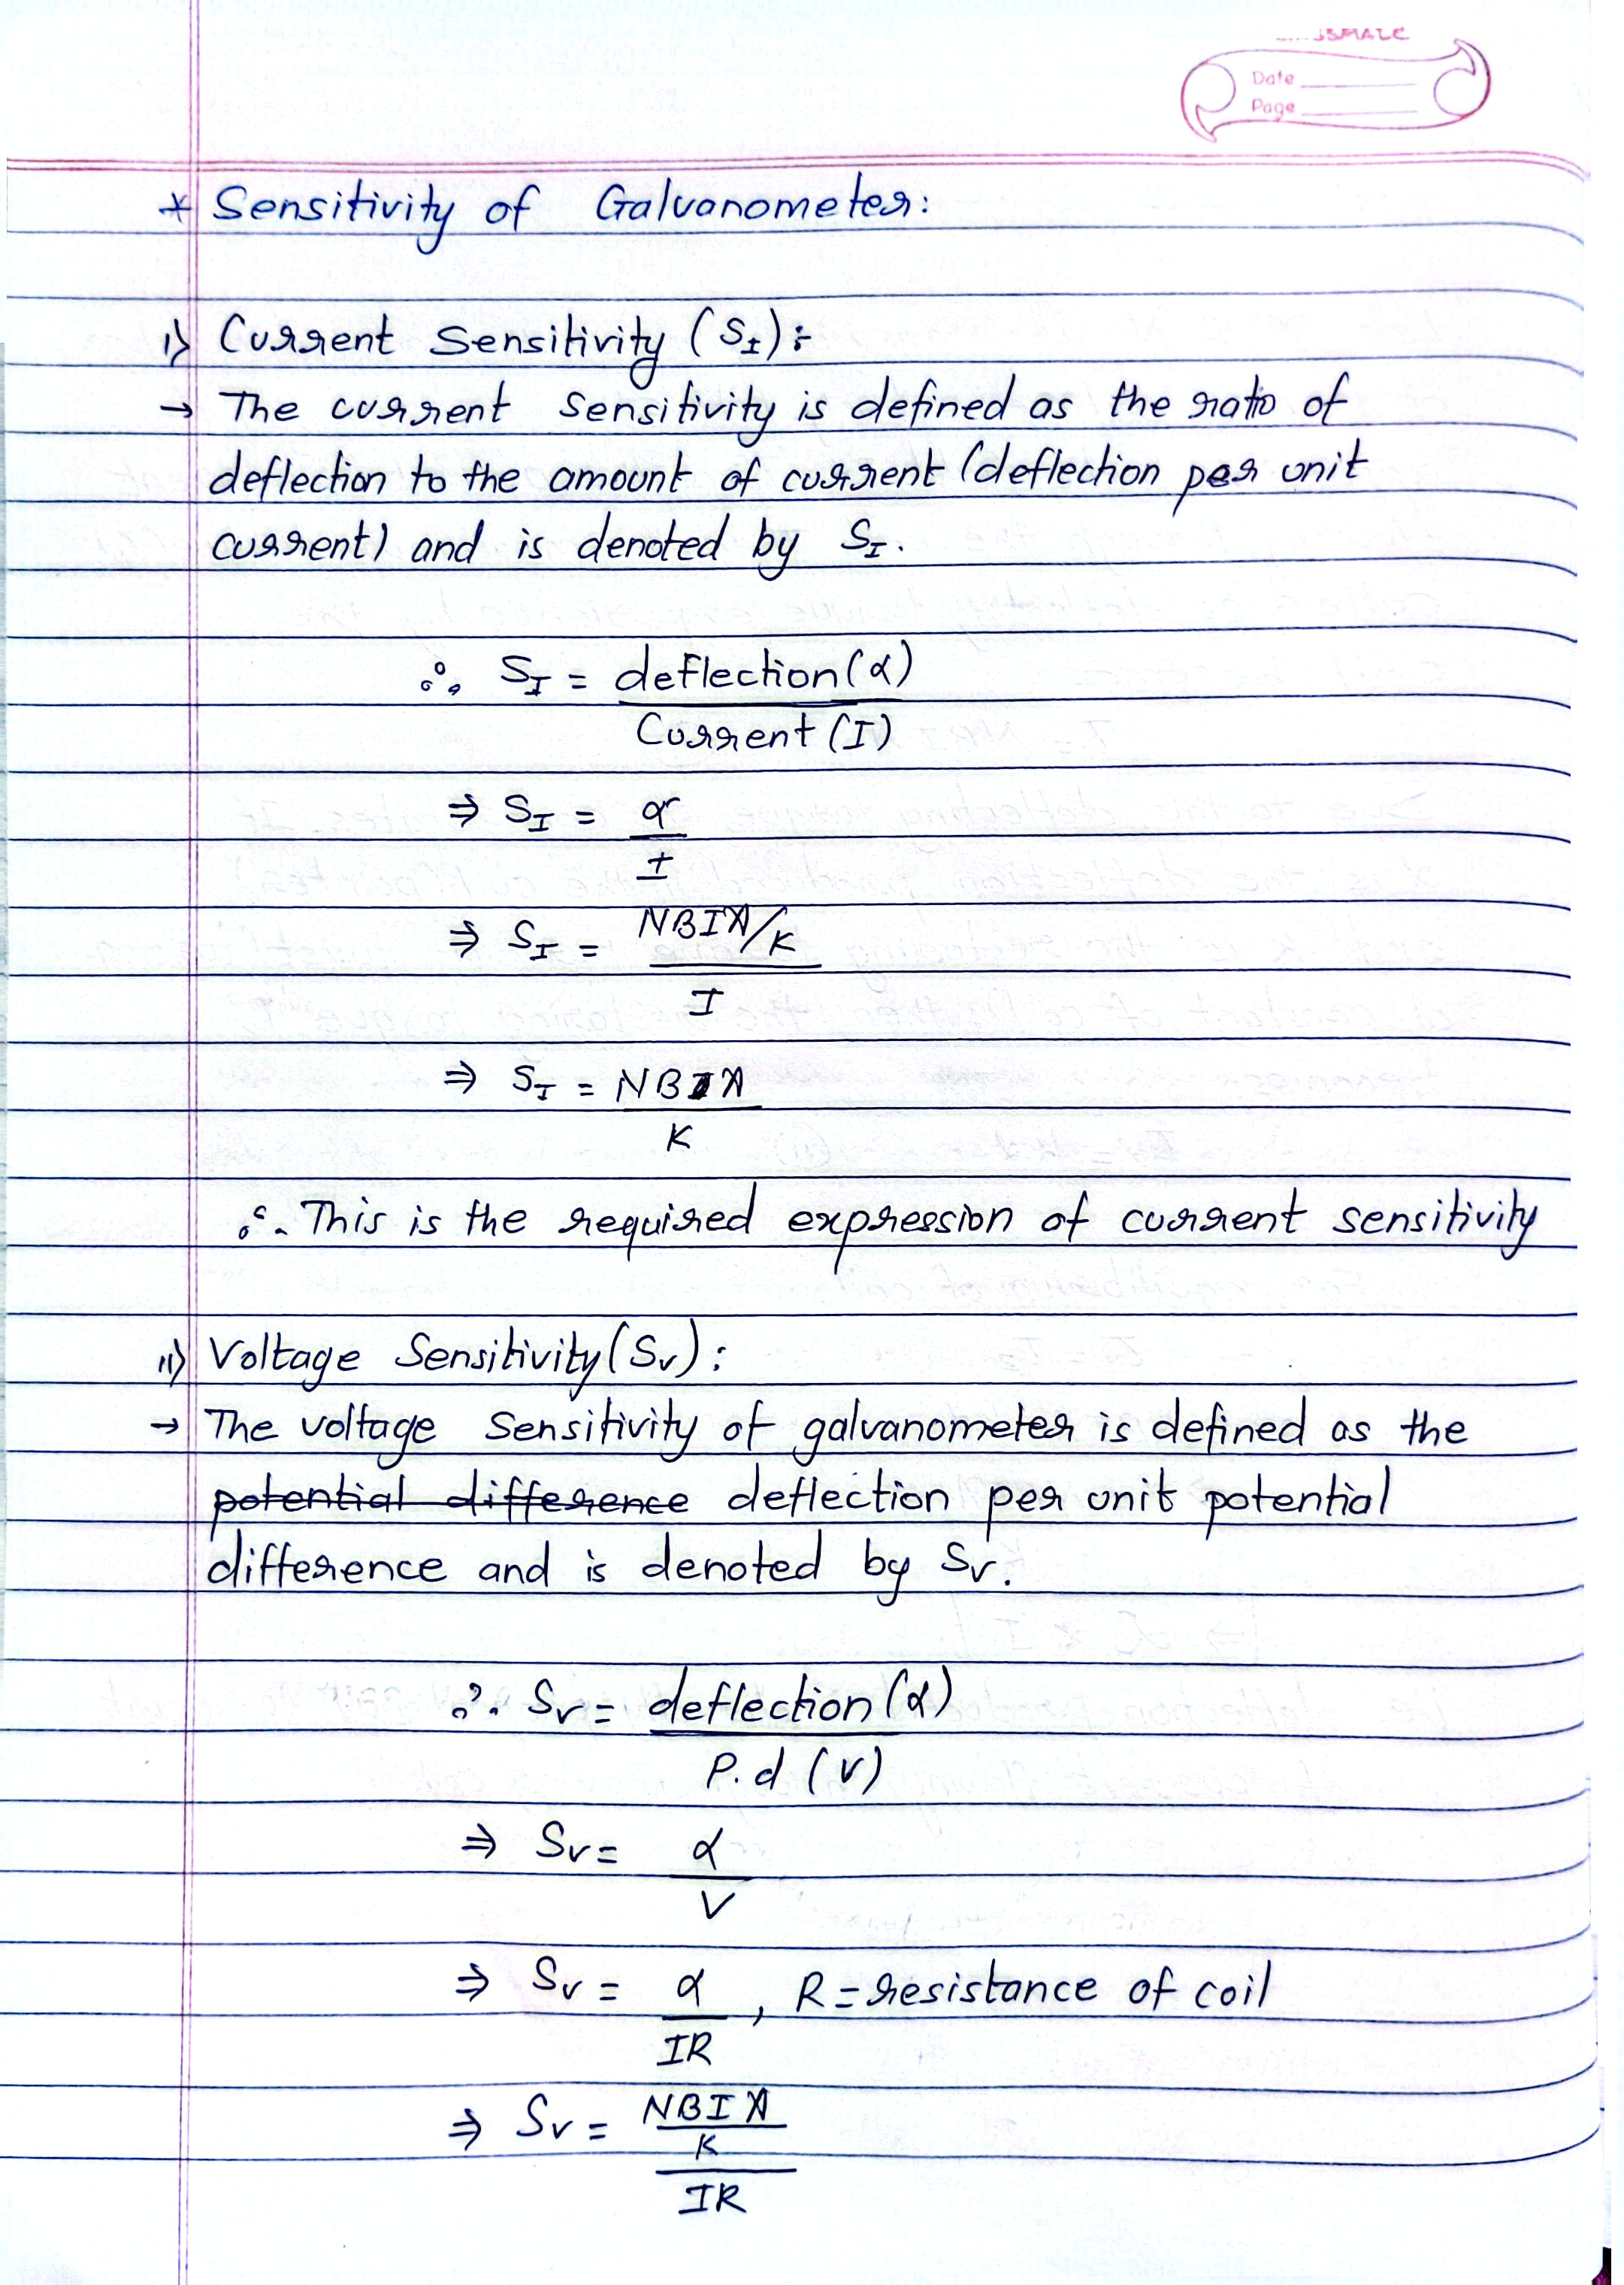 Date
Page
* Sensitivity of Galvanometer:
i) Current Sensitivity (S_I):-
→ The current sensitivity is defined as the ratio of
deflection to the amount of current (deflection per unit
current) and is denoted by S_I.
∴ S_I = deflection(α)
Current (I)
⇒ S_I = α
I
⇒ S_I = NBIA/K
I
⇒ S_I = NBA
K
∴ This is the required expression of current sensitivity
ii) Voltage Sensitivity(Sv):
→ The voltage sensitivity of galvanometer is defined as the
potential difference deflection per unit potential
difference and is denoted by Sv.
∴ Sv = deflection(α)
P.d (V)
⇒ Sv = α
V
⇒ Sv = α , R = resistance of coil
IR
⇒ Sv = NBIA
K
IR